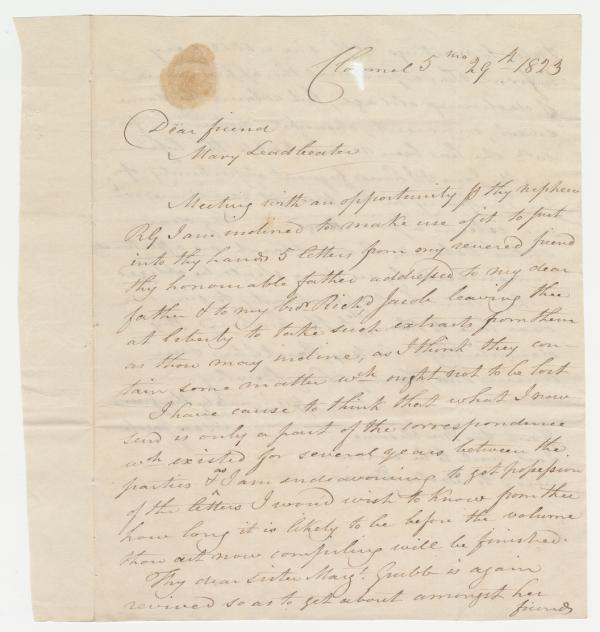 Clonmel 5 mo 29th 1823
Dear friend
Mary Leadbeater
Meeting with an opportunity P thy nephew
RG I am inclined to make use of it to put
into thy hands 5 letters from my revered friend
thy honourable father addressed to my dear
father & to my bror Richd Jacob leaving thee
at liberty to take such extracts from them
as thou may incline, as I think they con-
tain some matter wch ought not to be lost
I have cause to think that what I now
send is only a part of the correspondence
wch existed for several years between the
parties & I am endeavouring to get possession
of the letters I would wish to know from thee
how long it is likely to be before the volume
thou art now compiling will be finished.
Thy dear sister Margt. Grubb is again
revived so as to get about amongst her
friends